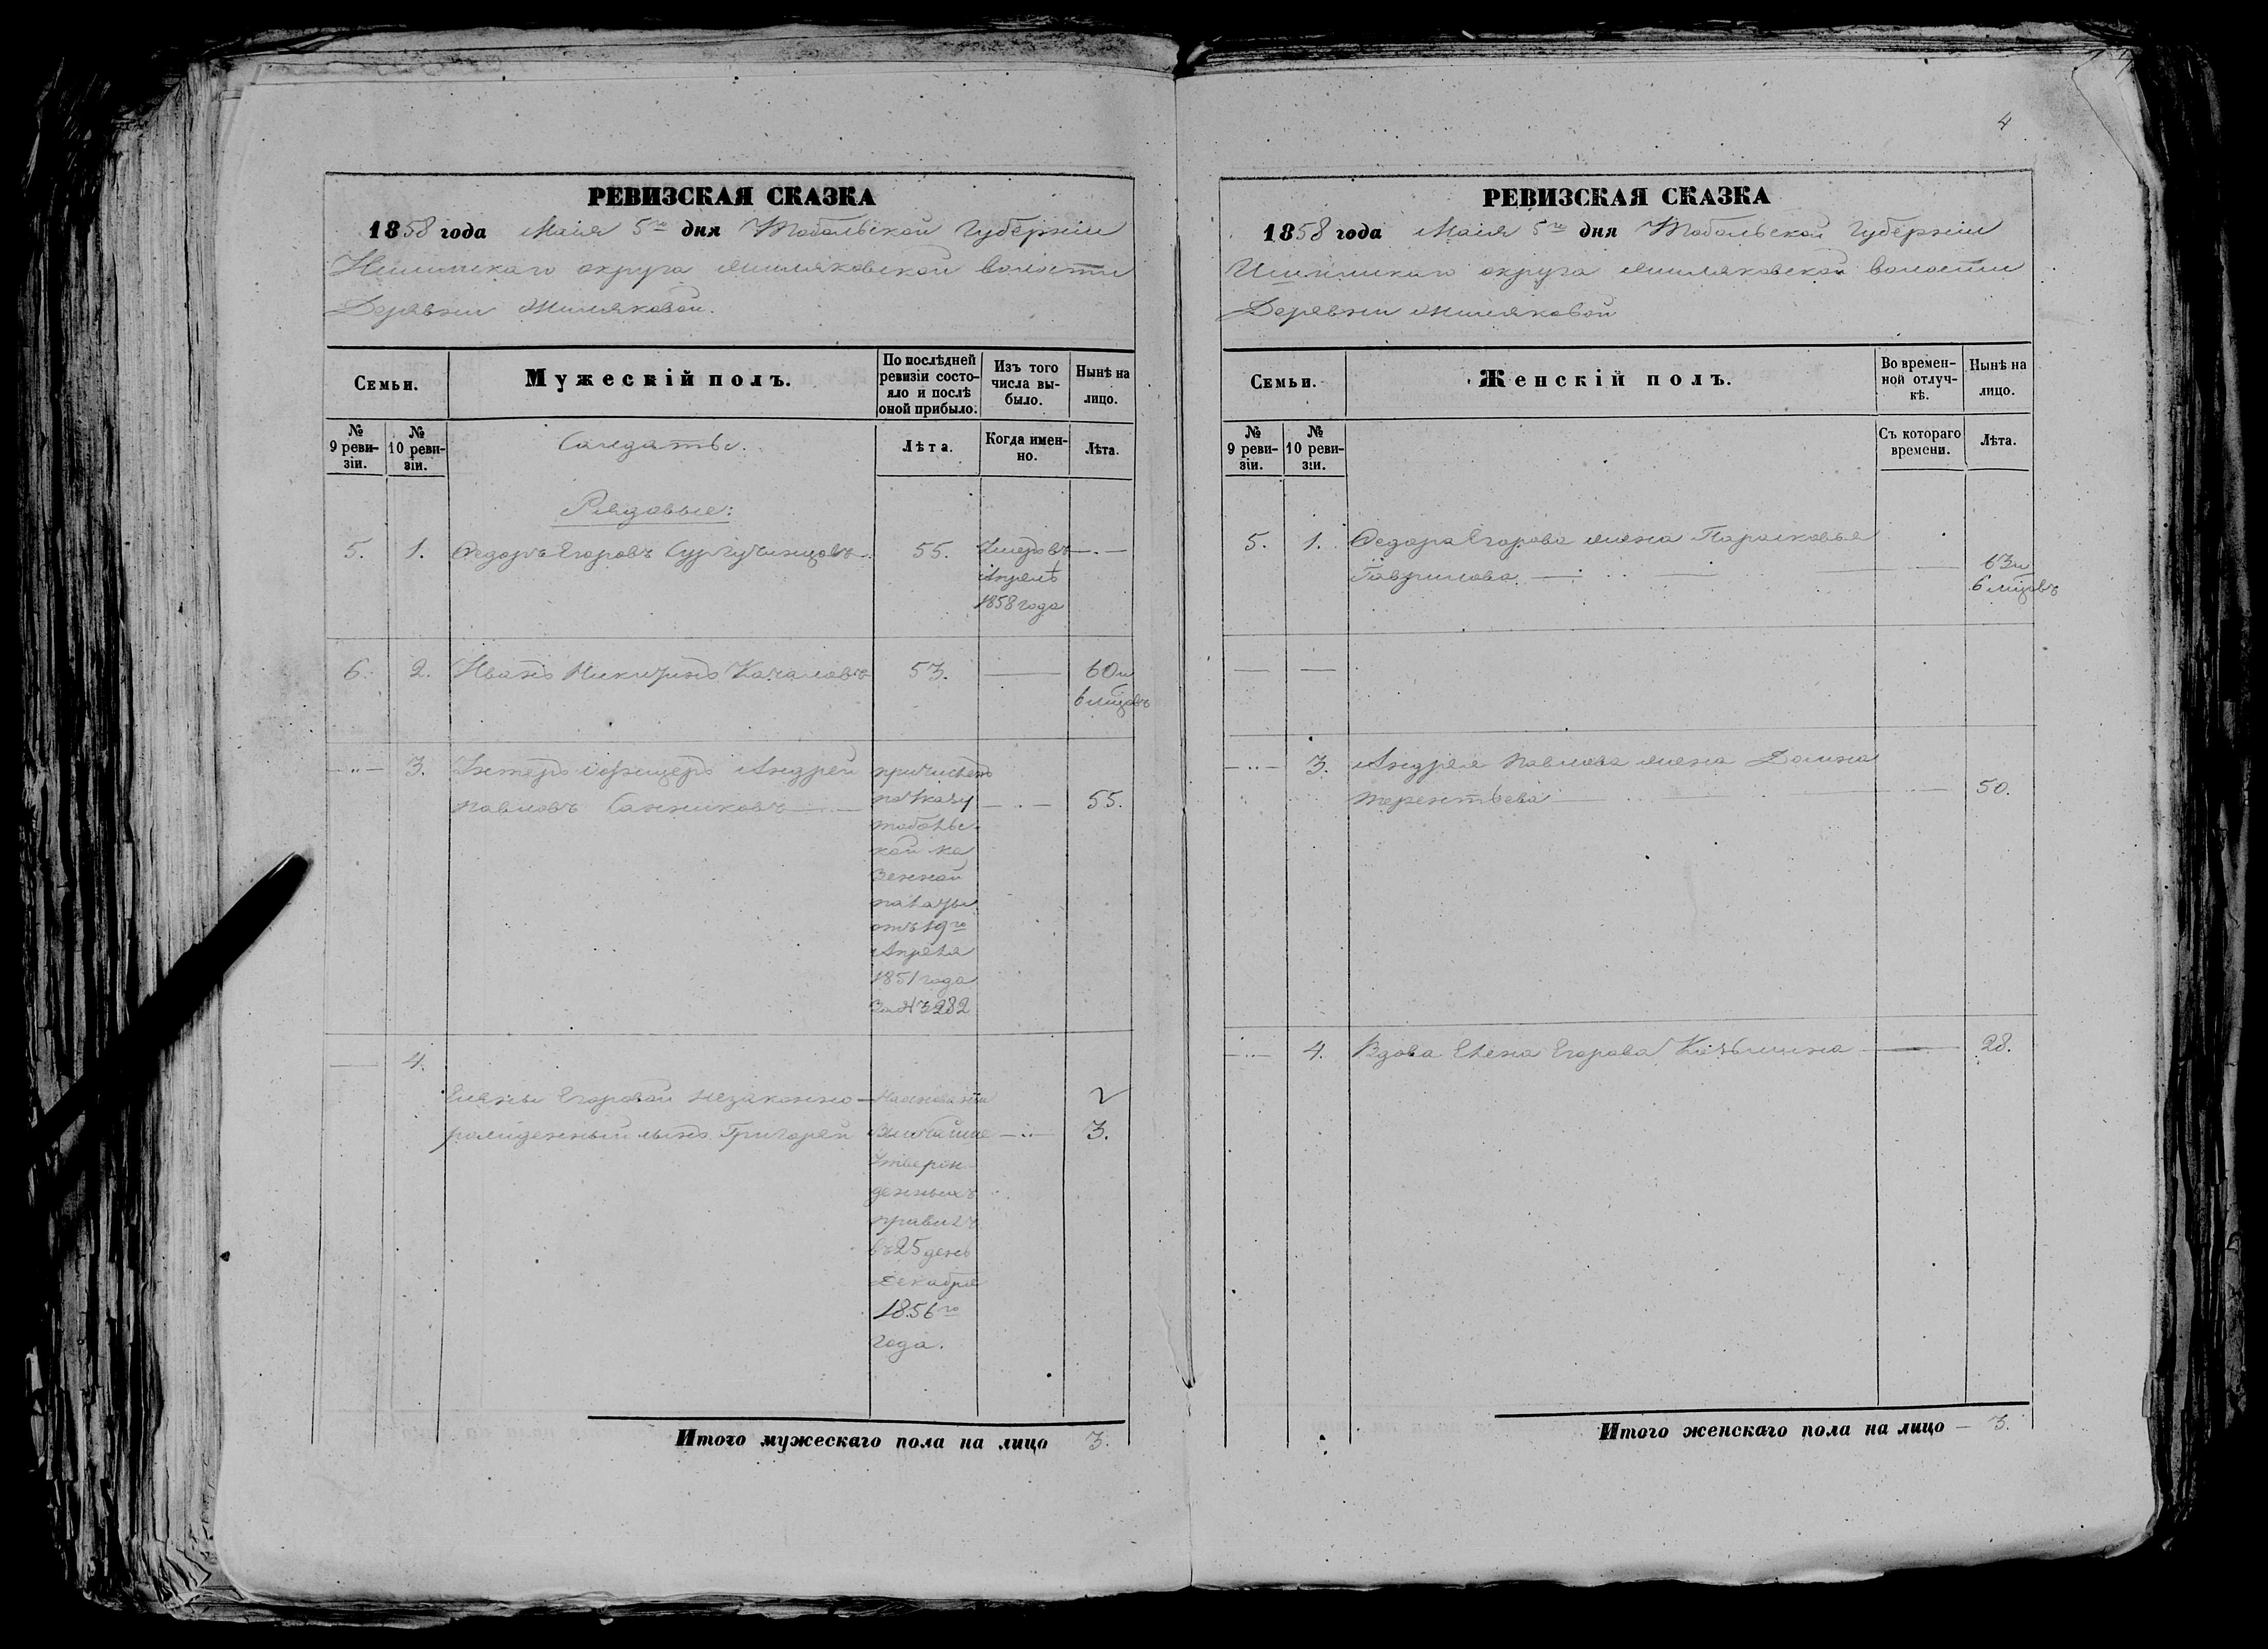 4
РЕВИЗСКАЯ СКАЗКА
1858 года Маія 5го дня Тобольской Губерніи
Ишимскаго округа Жиляковской волости
Деревни Жиляковой.
Семьи.
Мужескій полъ.
По послѣдней
ревизіи состо-
яло и послѣ
оной прибыло.
Изъ того
числа вы-
было.
Нынѣ на
лицо.
№
9 реви-
зіи.
№
10 реви-
зіи.
Лѣта.
Когда имен-
но.
Лѣта.
Солдаты.
Рядовые:
5. 1. Федоръ Егоровъ Сургутисковъ 55. Умеръ въ
Апрелѣ
1858 года
6. 2. Иванъ Никитинъ Качаловъ 53. 60 и
6 мцовъ
3. Унтеръ офицеръ Андрей
Павловъ Санниковъ 55.
причисленъ
по указу
тобольс-
кой ка
зенной
палаты
отъ 19го
Апреля
1851 года
за № 3282
4.
Елены Егоровой незаконно-
рожденный сынъ Григорей 2
3.
На основаніи
Высочайше
утверж
денныхъ
правилъ
въ 25 день
декабря
1856го
года.
Итого мужескаго пола на лицо 3.
РЕВИЗСКАЯ СКАЗКА
1858 года Маія 5го дня Тобольской Губерніи
Ишимскаго округа Жиляковской волости
Деревни Жиляковой
Семьи.
Женскій полъ.
Во времен-
ной отлуч-
кѣ.
Нынѣ на
лицо.
№
9 реви-
зіи.
№
10 реви-
зіи.
Съ котораго
времени.
Лѣта.
5. 1. Федора Егорова жена Парасковья
Гаврилова 63 и
6 мцовъ
3. Андрея Павлова жена Домна
Терентьева 50.
4. Вдова Елена Егорова 28.
Итого женскаго пола на лицо 3.